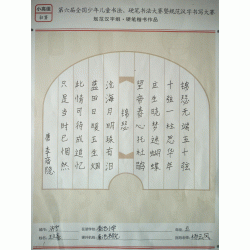 第六届全国少年儿童书法、硬笔书法大赛暨规范汉字书写大赛
硬笔楷书作品
锦瑟无端五十弦
一弦一柱思华年
庄生晓梦迷蝴蝶
望帝春心托杜鹃
锦瑟
沧海月明珠有泪
蓝田日暖玉生烟
此情可待成追忆
只是当时已惘然
唐 李商隐